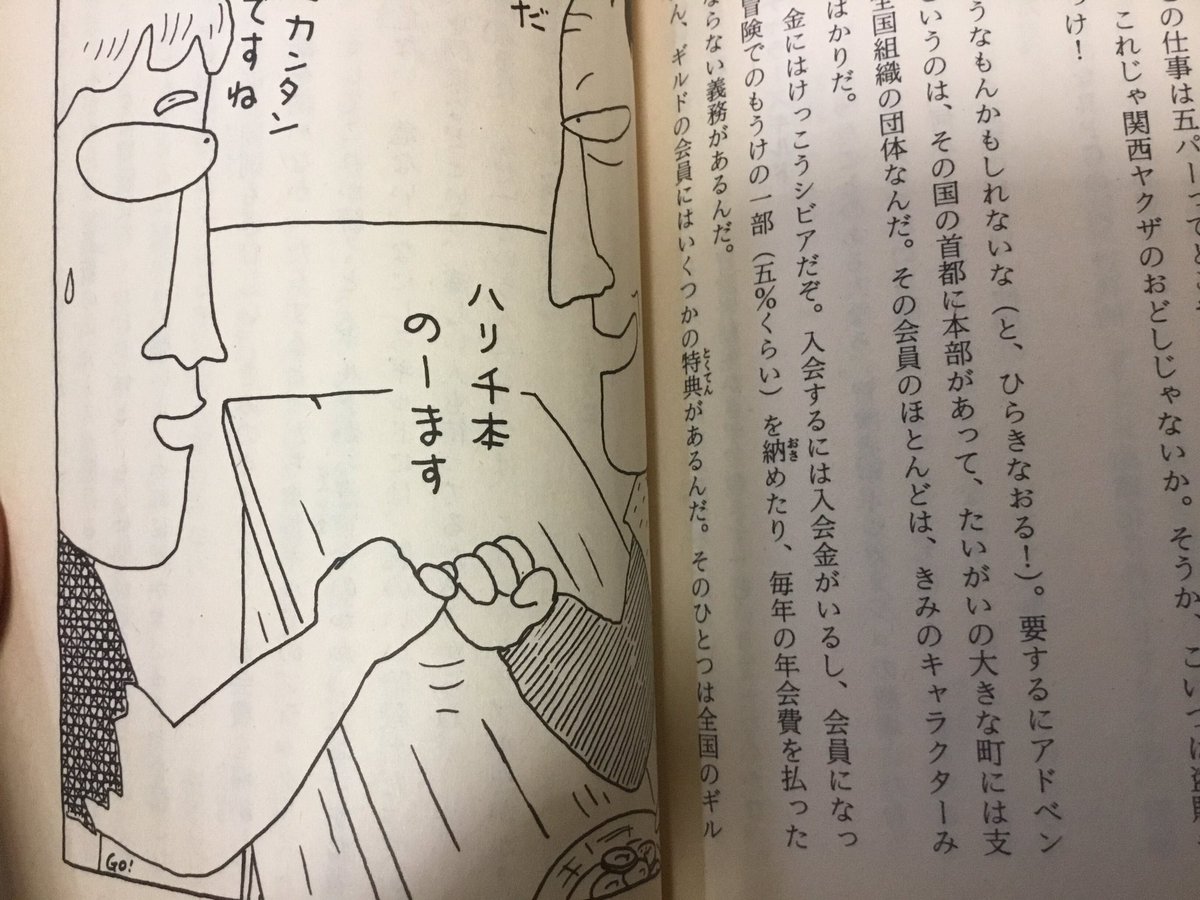 の仕事は五パーってと
これじゃ関西ヤクザのおどしじゃないか。そうか、こいつは盗賊
け!
うなもんかもしれないな(と、ひらきなおる!)。要するにアドベン
というのは、その国の首都に本部があって、たいがいの大きな町には支
全国組織の団体なんだ。その会員のほとんどは、きみのキャラクターみ
ばかりだ。
金にはけっこうシビアだぞ。入会するには入会金がいるし、会員になっ
冒険でのもうけの一部(五%くらい)を納めたり、毎年の年会費を払った
ならない義務があるんだ。
ん、ギルドの会員にはいくつかの特典があるんだ。そのひとつは全国のギル
だ
カンタン
ですね
ハリ千本
のーます
GO!